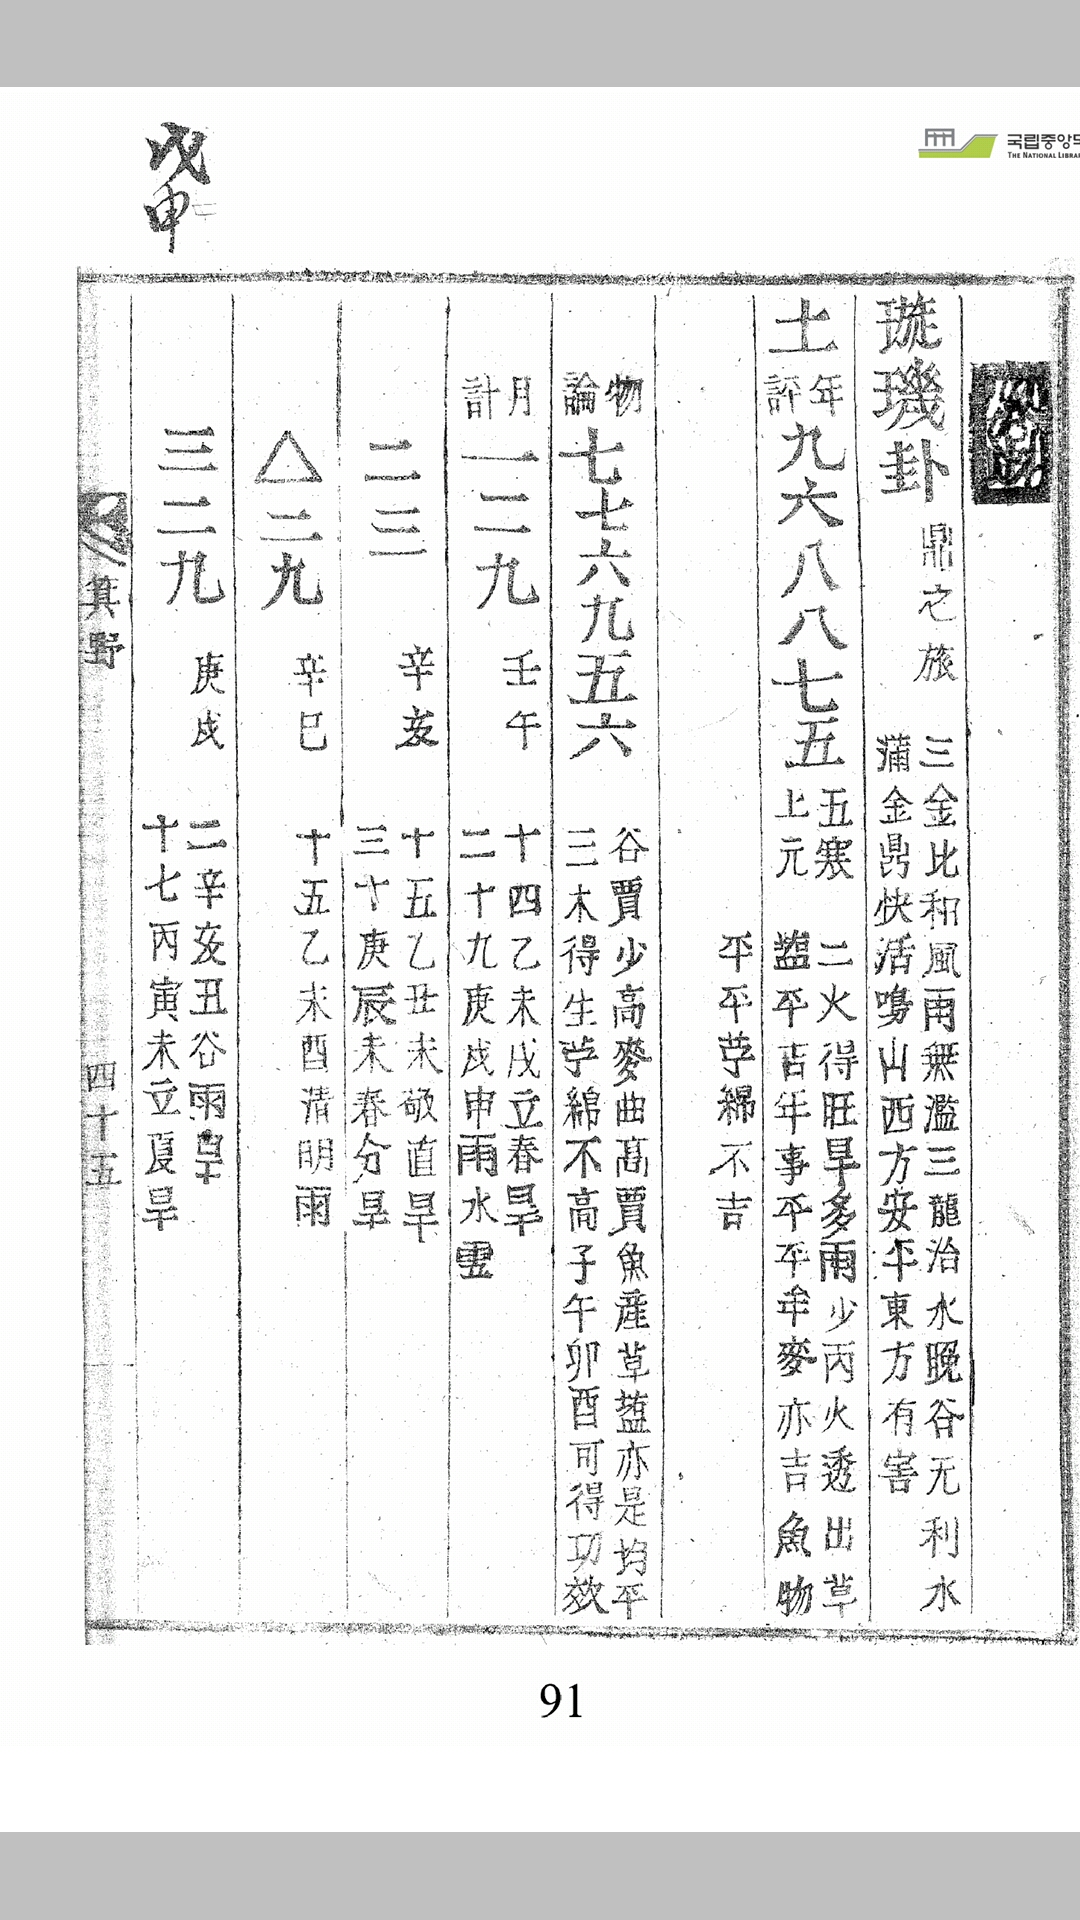 국립중앙도
THE NATIONAL LIBRA
戊申
璇璣卦
鼎之旅
三金比和風雨無濫三龍治水晚谷无利水
蒲金鼎快活鳴山西方安平東方有害
土
年評
九六八八七五
五寒
上元
二火得旺旱多雨少丙火透出草
盐平吉年事平平年麥亦吉魚物
平平苧綿不吉
物論
七七六九五六
谷賈少高麥曲高賈魚産草盐亦是均平
三木得生苧綿不高子午卯酉可得功效
月計
一二九
壬午
十四乙未戌立春旱
二十九庚戌申雨水
二三
辛亥
十五乙丑未敬直旱
三十庚辰未春分旱
△二九
辛巳
十五乙未酉清明雨
三二九
庚戌
二辛亥丑谷雨旱
十七丙寅未立夏旱
箕野
四十五
91